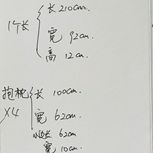 长 210cm.
1个长
宽 92cm
高 12cm.
抱枕 长 100cm.
X4
宽 62cm.
62cm
宽 10cm.